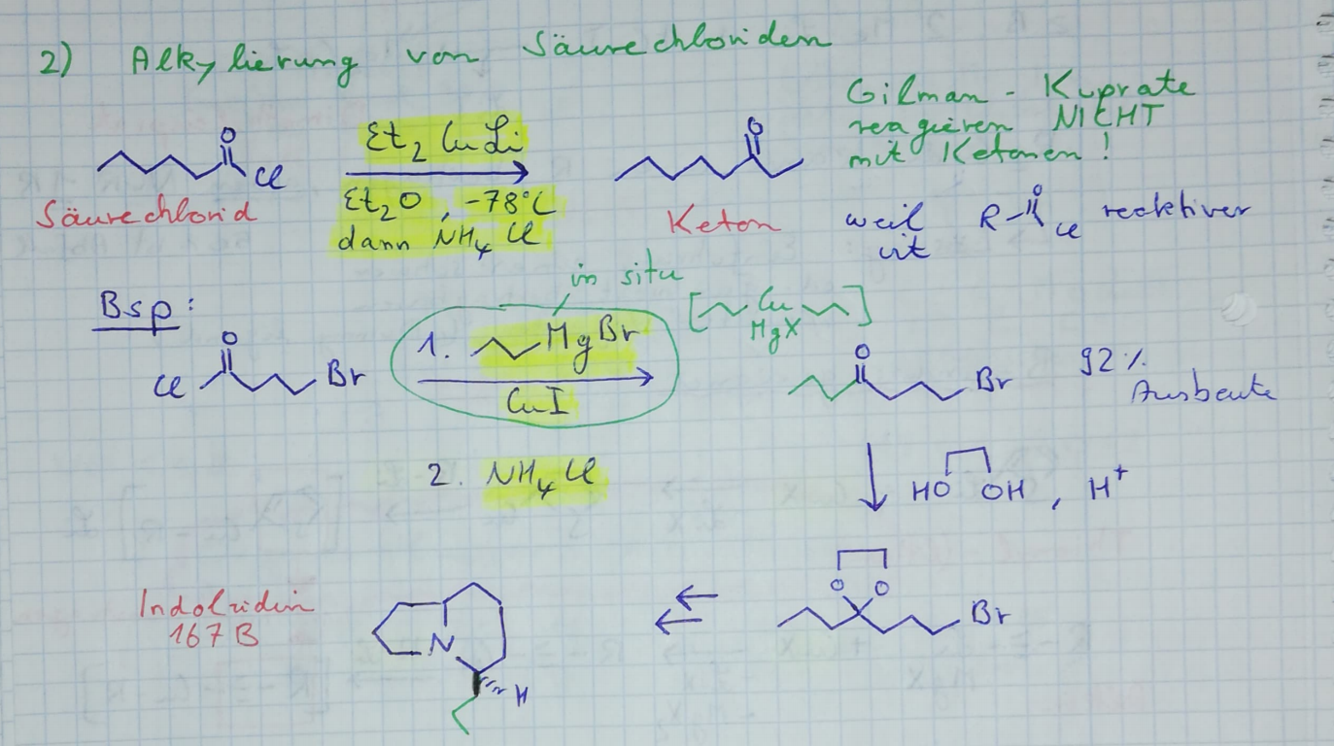 2) Alkylierung von Säurechloriden
Gilman - Kuprate
reagieren NICHT
mit Ketonen !
O
Cl
Et2CuLi
Et2O, -78°C
dann NH4Cl
O
Säurechlorid
Keton
weil R O Cl reaktiver
ist
in situ
Bsp:
Cl O Br
1. MgBr
CuI
[ Cu ]
MgX
O Br
92%
Ausbeute
2. NH4Cl
HO OH, H+
O O Br
Indolizidin
167 B
N
H